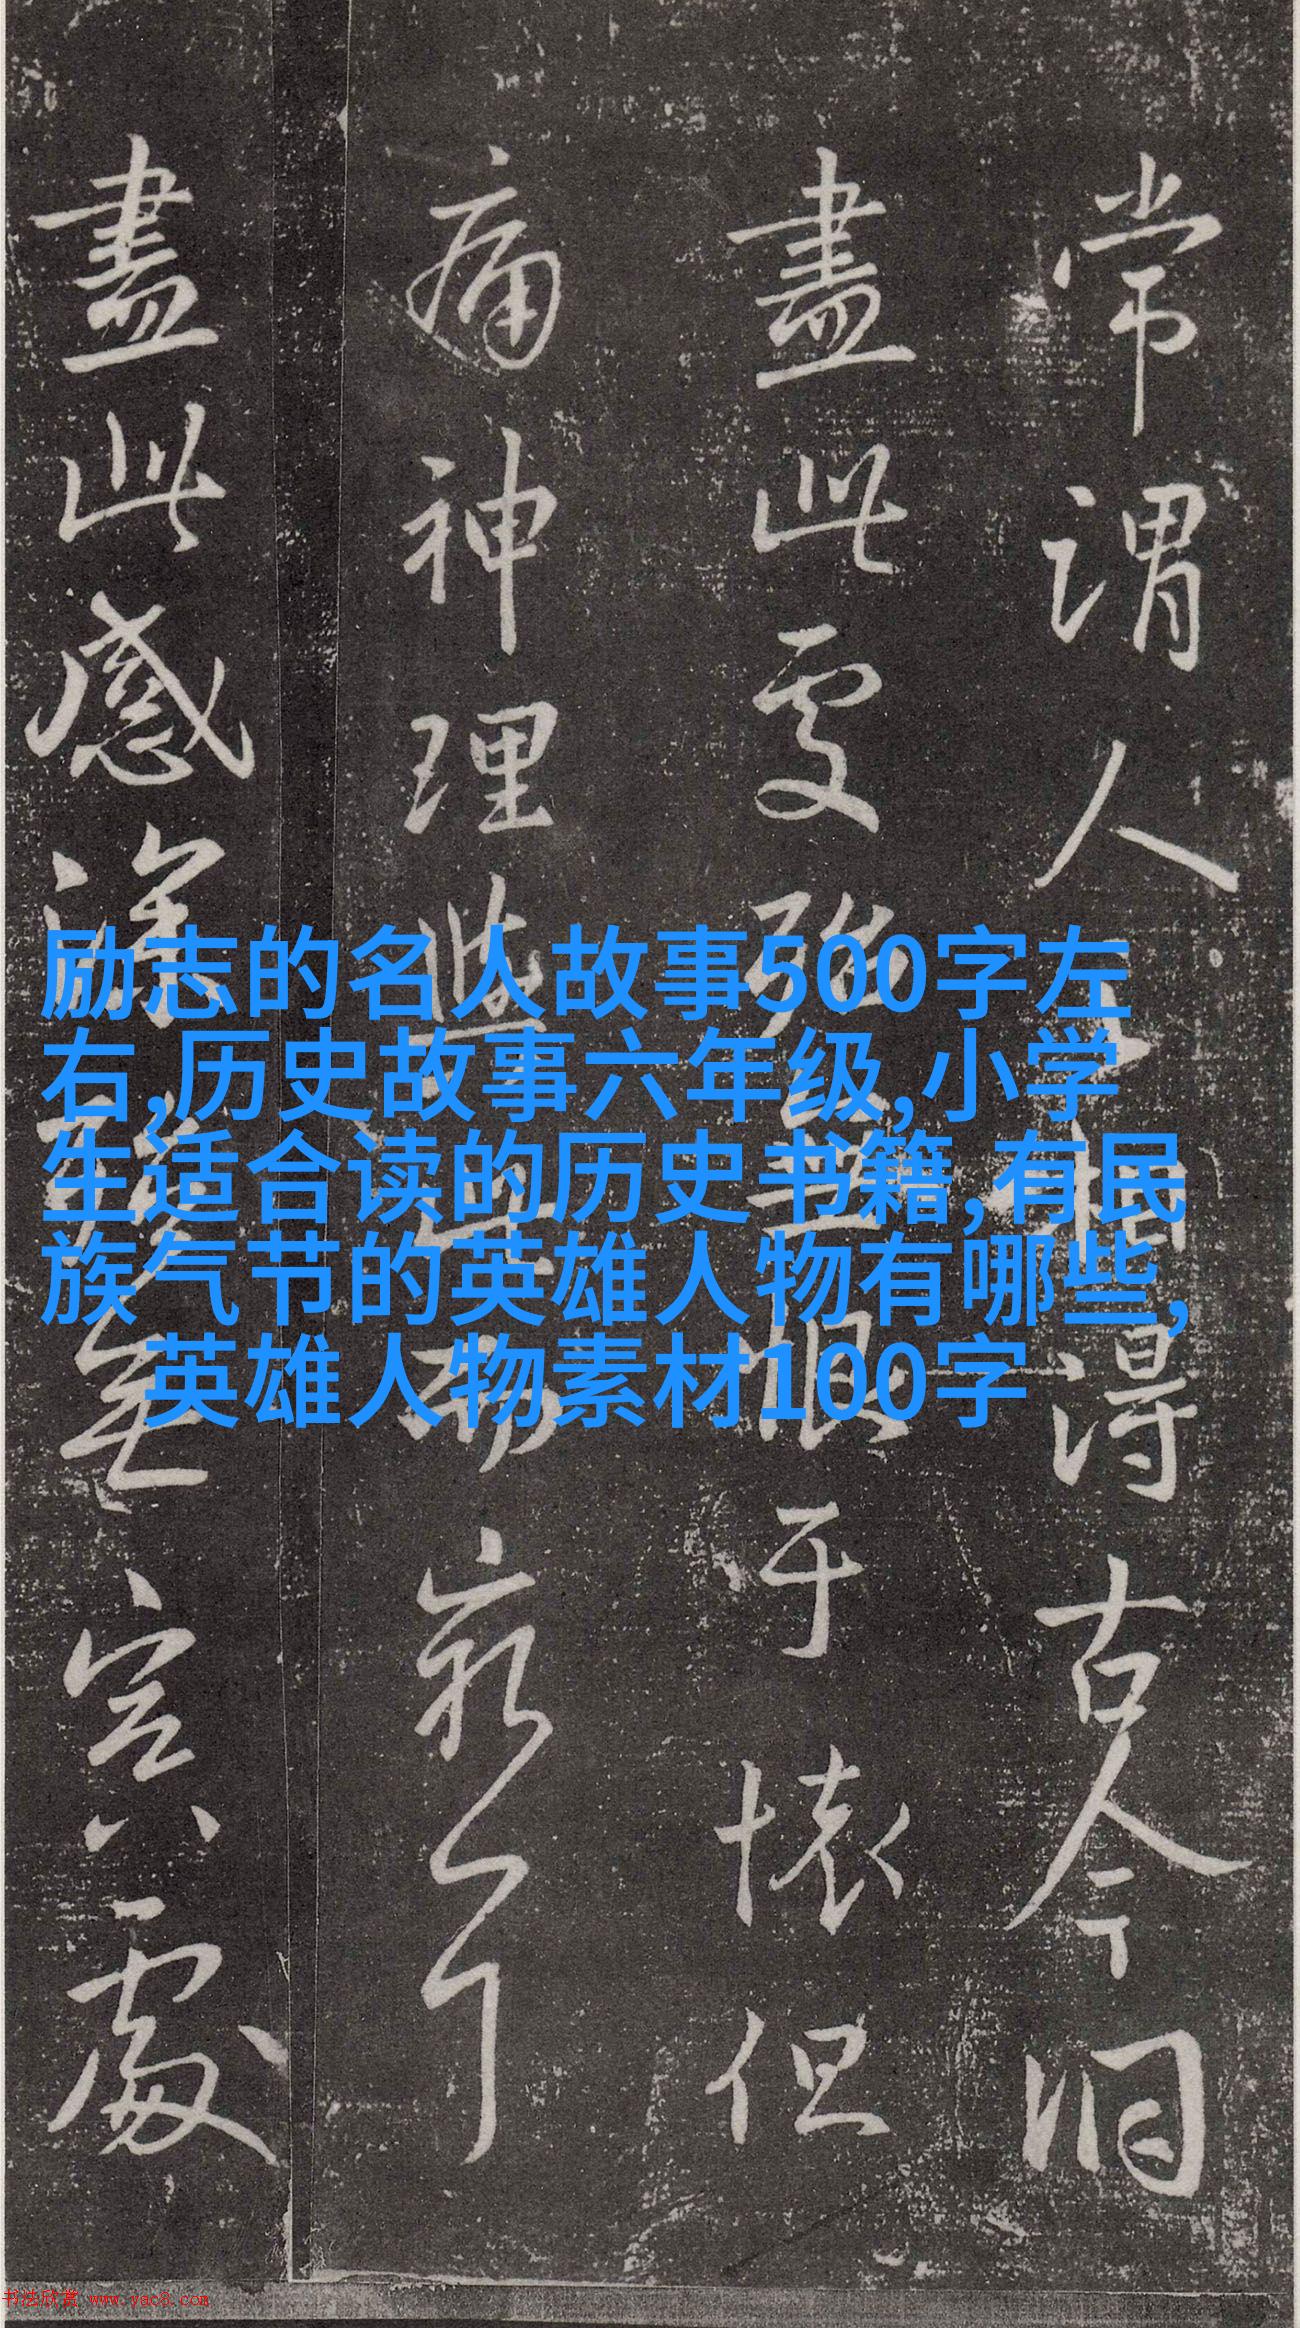 常謂人相得古今洞
盡此處恨于懷但
痛神理此而
盡此感深處
励志的名人故事500字左
右,历史故事六年级,小学
生适合读的历史书籍,有民
族气节的英雄人物有哪些,
英雄人物素材100字
书法欣赏 www.yac8.com